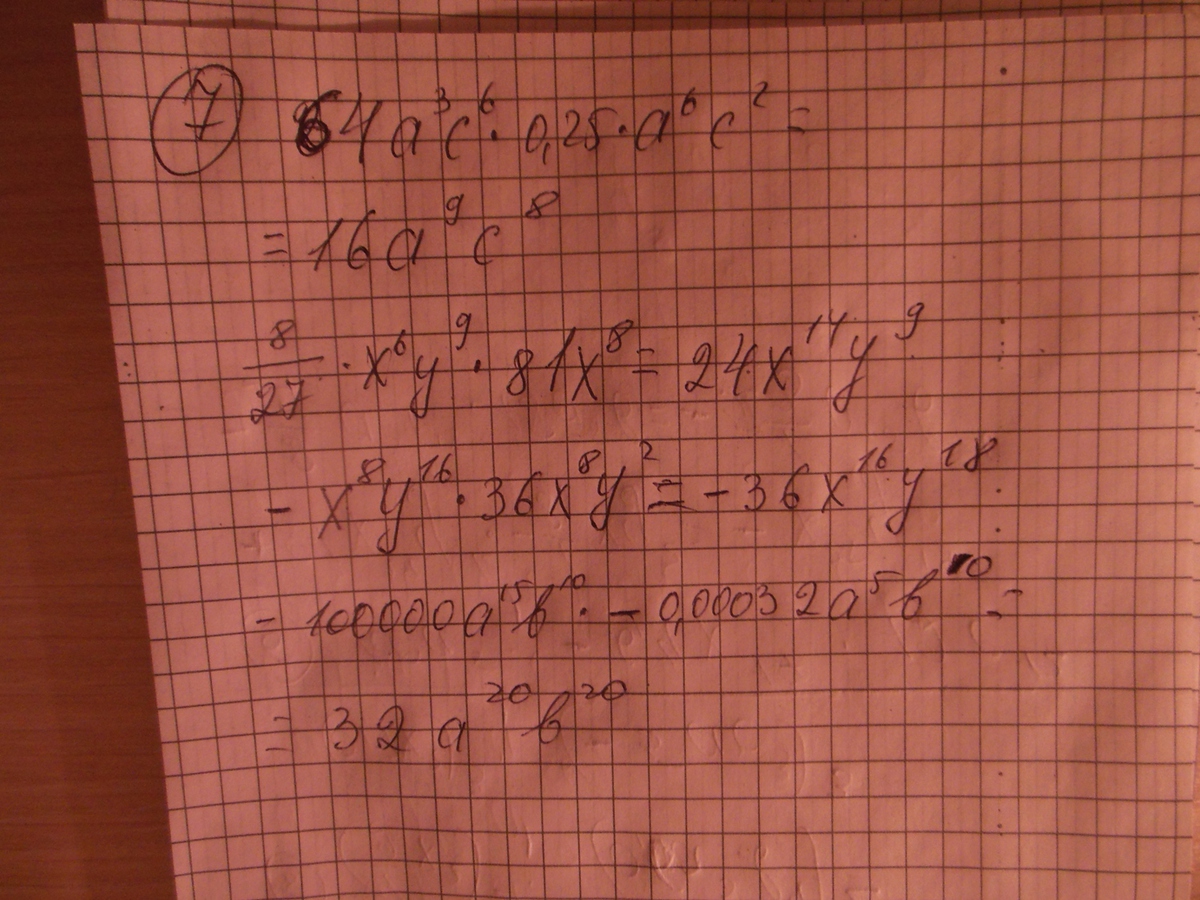 7 64a³c⁶ · 0,25 · a⁶c² =
= 16a⁹c⁸
8/27 · x⁶y⁹ · 81x⁸ = 24x¹⁴y⁹
- x⁸y¹⁶ · 36x⁸y² = - 36x¹⁶y¹⁸
- 100000a¹⁵b¹⁰ · - 0,00032a⁵b¹⁰ =
= 32a²⁰b²⁰